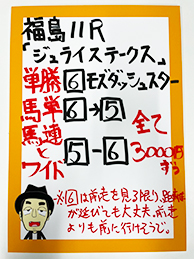 福島11R
「ジュライステークス」
単勝 6 モズダッシュスター
馬単 6→5 全て
馬連とワイド 5-6 3000円ずつ
※6は前走を見る限り、距離
が延びても大丈夫。前走
よりも前に行けそうで。